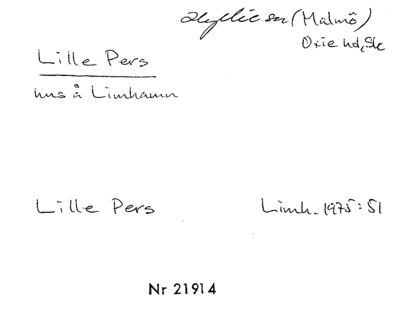 Hyllie sn (Malmö)
Oxie hd, Sk
Lille Pers
hus å Limhamn
Lille Pers
Limh. 1975:51
Nr 21914